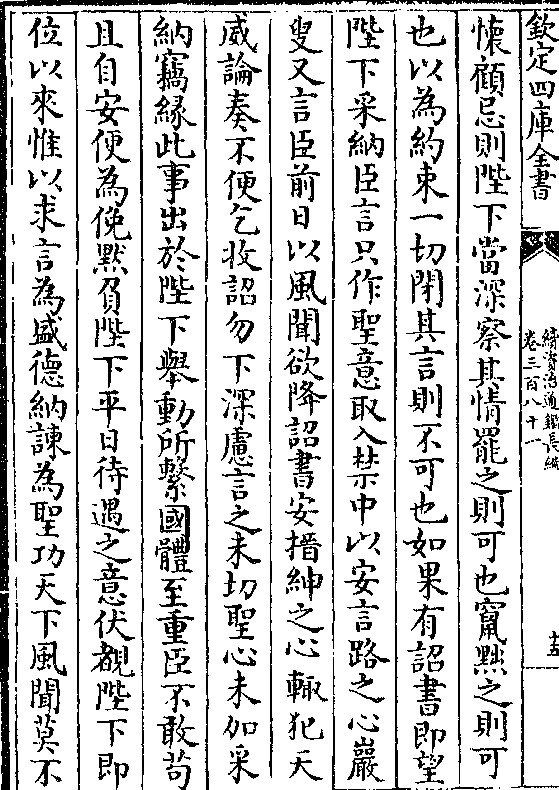 欽定四庫全書
續資治通鑑長編
卷三百八十一
十五
懷顧忌則陛下當深察其情罷之則可也竄黜之則可
也以為約束一切閉其言則不可也如果有詔書即望
陛下采納臣言只作聖意取入禁中以安言路之心巖
叟又言臣前日以風聞欲降詔書安搢紳之心輙犯天
威論奏不便乞收詔勿下深慮言之未切聖心未加采
納竊緣此事出於陛下舉動所繫國體至重臣不敢苟
且自安便為俛黙負陛下平日待遇之意伏覩陛下即
位以來惟以求言為盛德納諫為聖功天下風聞莫不